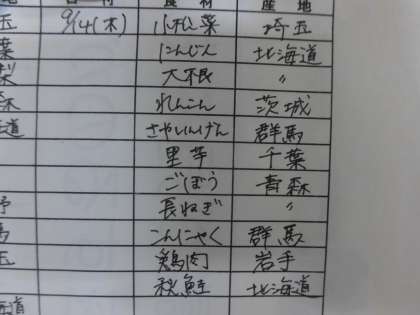 9/14(木) 小松菜 埼玉
にんじん 北海道
大根 〃
れんこん 茨城
さやいんげん 群馬
里芋 千葉
ごぼう 青森
長ねぎ 〃
こんにゃく 群馬
鶏肉 岩手
秋鮭 北海道